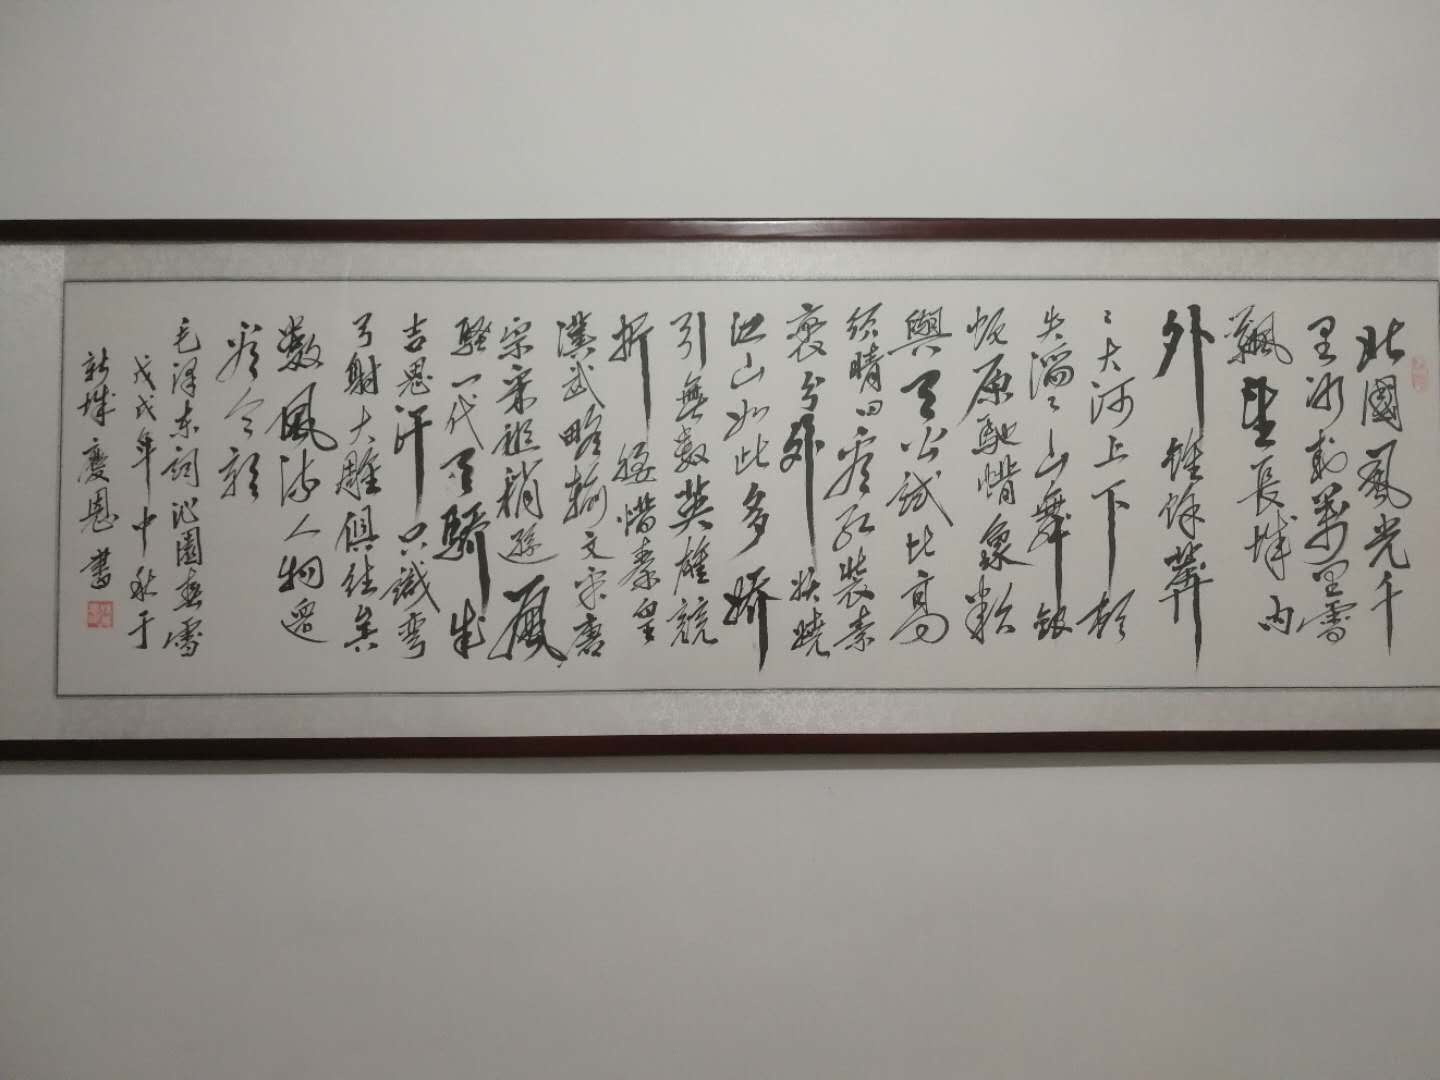 北國風光千
里冰封萬里雪
飄望長城内
外惟餘莽
〻大河上下頓
失滔〻山舞銀
蛇原馳蜡象欲
與天公試比高
須晴日看紅裝素
裹分外妖嬈
江山如此多嬌
引無數英雄競
折腰惜秦皇
漢武略輸文采唐
宗宋祖稍遜風
騷一代天驕成
吉思汗只識彎
弓射大雕俱往矣
數風流人物還
看今朝
毛澤東詞沁園春雪
戊戌年中秋于
新城慶恩書